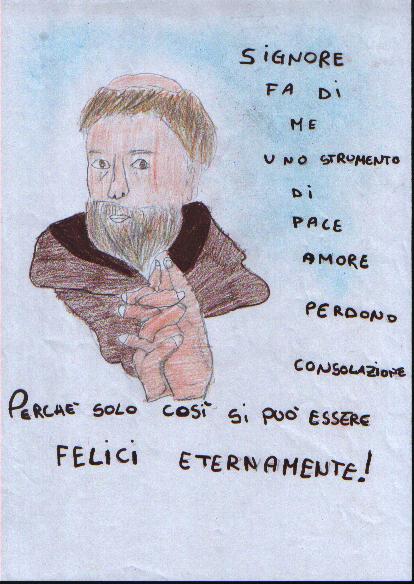 SIGNORE
FA DI
ME
UNO STRUMENTO
DI
PACE
AMORE
PERDONO
CONSOLAZIONE
PERCHÈ SOLO COSÌ SI PUÒ ESSERE
FELICI ETERNAMENTE!